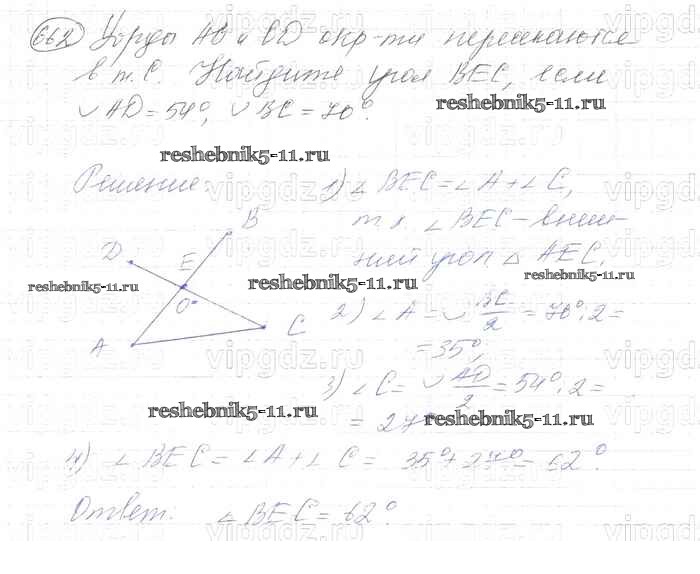 662 Хорды AB и CD окр-ти пересекаются
в т. C. Найдите угол BEC, если
◡ AD = 54°, ◡ BC = 70°.
reshebnik5-11.ru
reshebnik5-11.ru
Решение:
1) ∠ BEC = ∠ A + ∠ C,
т.к. ∠ BEC – внеш-
ний угол △ AEC.
B
D
E
O
A
C
reshebnik5-11.ru
reshebnik5-11.ru
reshebnik5-11.ru
2) ∠ A = ◡ BC/2 = 70° : 2 =
= 35°;
3) ∠ C = ◡ AD/2 = 54° : 2 =
= 27°
reshebnik5-11.ru
reshebnik5-11.ru
4) ∠ BEC = ∠ A + ∠ C = 35° + 27° = 62°.
Ответ: ∠ BEC = 62°
vipgdz.ru